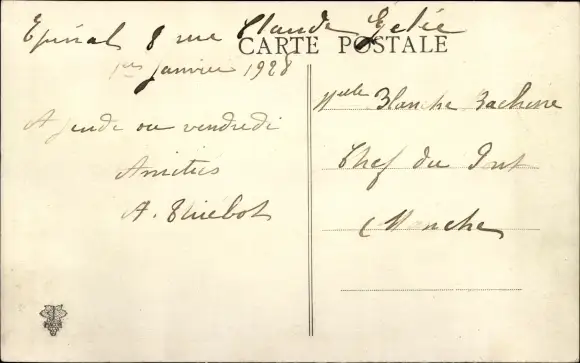 Epinal 8 rue Claude Gelée
CARTE POSTALE
1er Janvier 1928
A jeudi ou vendredi
Amitiés
A. Thiébot
Melle Blanche
Chef du
Manche